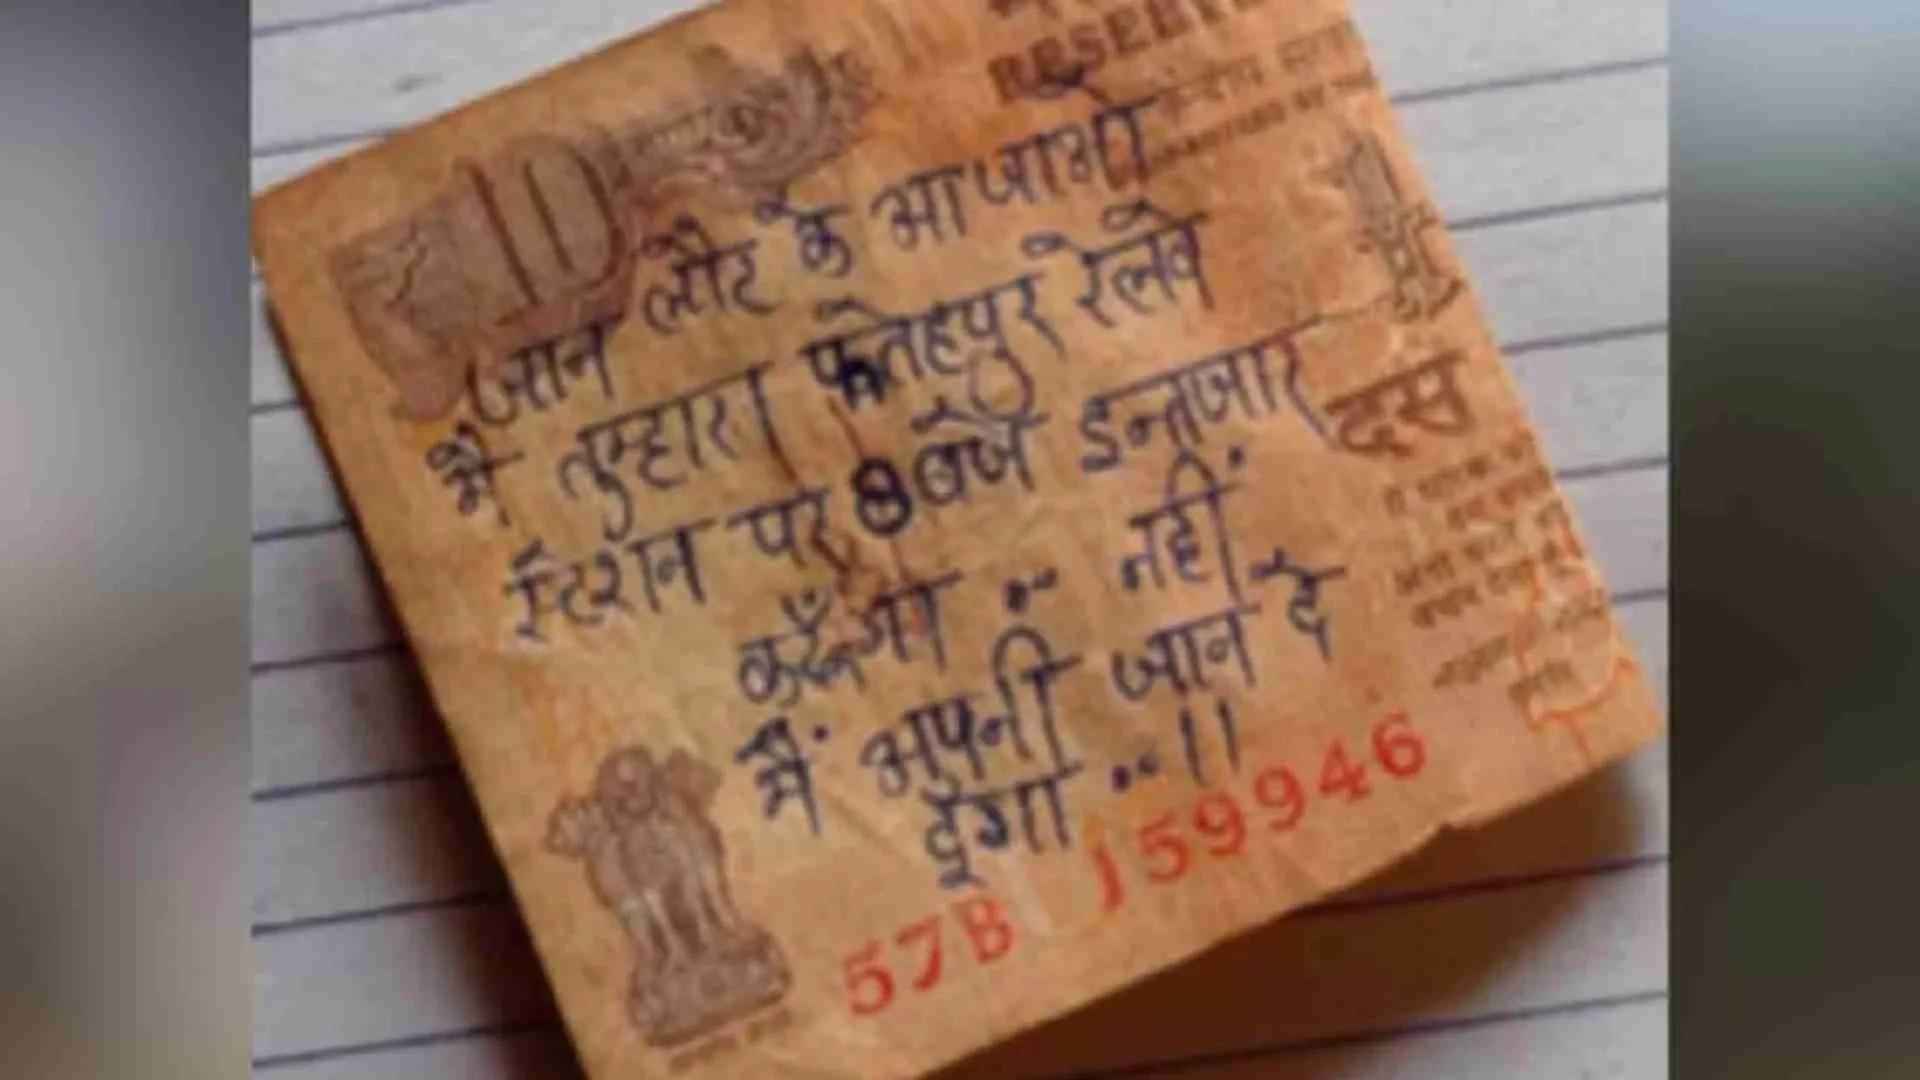 RESERVE
10
जान लौट के आ जाओ
मैं तुम्हारा फतेहपुर रेलवे
स्टेशन पर 8 बजे इन्तजार
करूँगा .. नहीं
मैं अपनी जान दे
दूंगा ..।।
दस
57B 159946